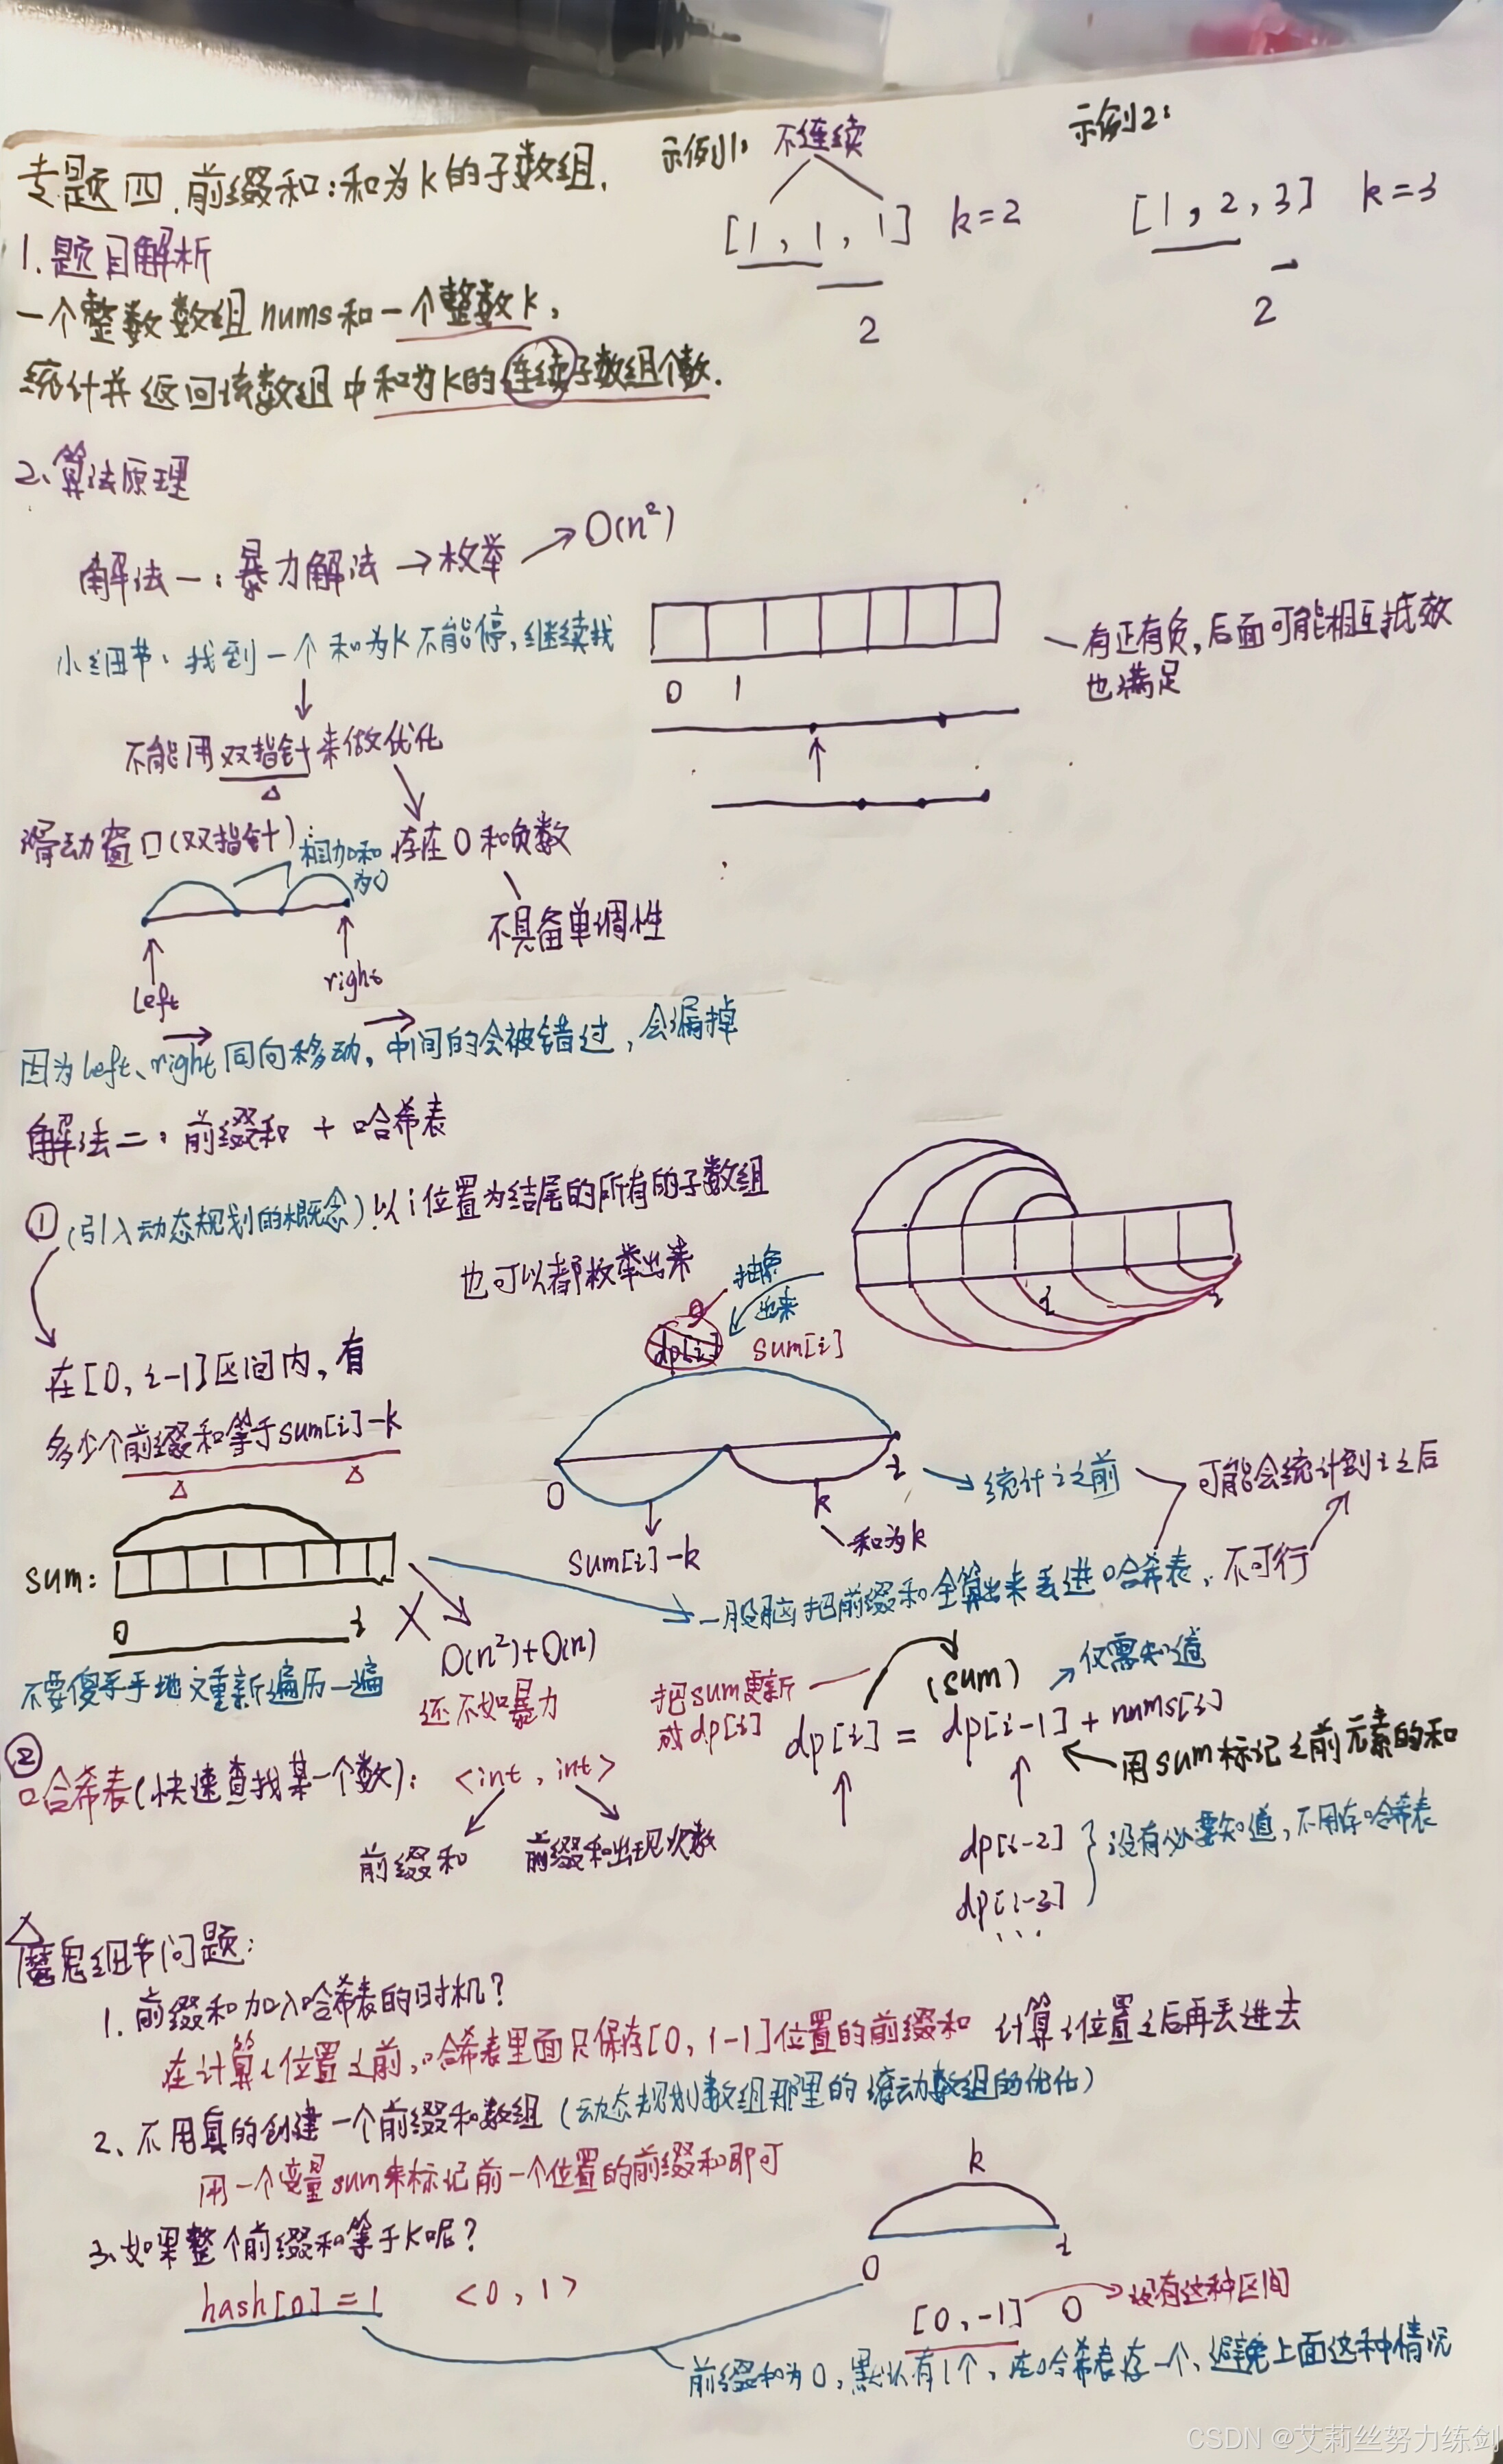 专题四.前缀和:和为k的子数组.
示例1: 不连续
[1, 1, 1] k=2
2
示例2:
[1, 2, 3] k=3
2
1.题目解析
一个整数数组nums和一个整数k,
统计并返回该数组中和为k的连续子数组个数.
2、算法原理
解法一:暴力解法→枚举→O(n²)
小细节、找到一个和为k不能停,继续找
不能用双指针来做优化
0 1
有正有负,后面可能相互抵效
也满足
滑动窗口(双指针):
相加和
为0
存在0和负数
不具备单调性
left
right
因为left、right同向移动,中间的会被错过,会漏掉
解法二:前缀和 + 哈希表
①(引入动态规划的概念).以i位置为结尾的所有的子数组
也可以都枚举出来
抽象
出来
i
i
dp[i] sum[i]
在[0, i-1]区间内,有
多少个前缀和等于sum[i]-k
0
i
k
sum[i]-k
和为k
统计i之前
可能会统计到i之后
sum:
0
i
O(n²)+O(n)
还不如暴力
一股脑把前缀和全算出来丢进哈希表、不可行
不要傻乎乎地又重新遍历一遍
把sum更新
成dp[i]
(sum)
仅需知道
dp[i] = dp[i-1] + nums[i]
用sum标记之前元素的和
dp[i-2]
dp[i-3]
...
没有必要知道,不用存哈希表
②
哈希表(快速查找某一个数): <int, int>
前缀和
前缀和出现次数
魔鬼细节问题:
1.前缀和加入哈希表的时机?
在计算i位置之前,哈希表里面只保存[0, i-1]位置的前缀和 计算i位置之后再丢进去
2、不用真的创建一个前缀和数组(动态规划数组那里的滚动数组的优化)
用一个变量sum来标记前一个位置的前缀和即可
3、如果整个前缀和等于k呢?
hash[0]=1 <0, 1>
k
0
i
[0,-1] 0
没有这种区间
前缀和为0,默认有1个、在哈希表存一个、避免上面这种情况
CSDN @艾莉丝努力练剑